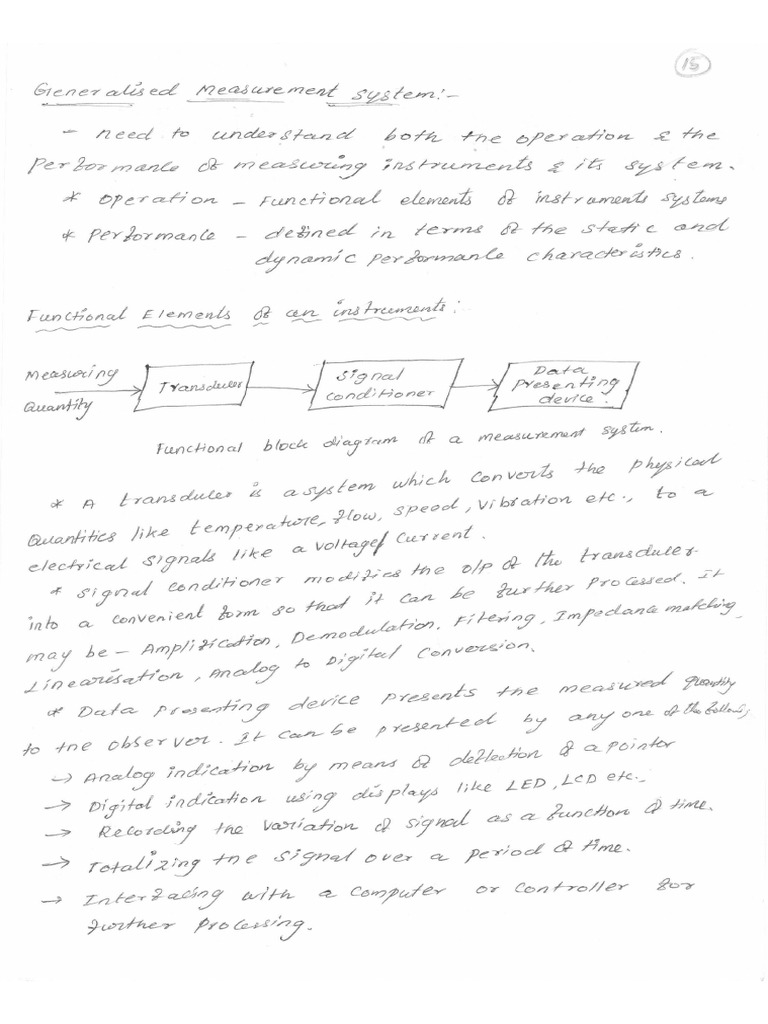 15
Generalised Measurement System:-
- need to understand both the operation & the
performance of measuring instruments & its system.
* operation - Functional elements of instruments systems
* Performance - defined in terms of the static and
dynamic performance characteristics.
Functional Elements of an instruments:
Measuring
Quantity
Transducer
Signal
conditioner
Data
Presenting
device.
Functional block diagram of a measurement system.
* A transducer is a system which converts the physical
Quantities like temperature, flow, speed, vibration etc., to a
electrical signals like a voltage/current.
* Signal conditioner modifies the o/p of the transducer
into a convenient form so that it can be further processed. It
may be - Amplification, Demodulation, Filtering, Impedance matching,
Linearisation, Analog to Digital conversion.
* Data presenting device presents the measured quantity
to the observer. It can be presented by any one of the following
→ Analog indication by means of deflection of a pointer
→ Digital indication using displays like LED, LCD etc.,
→ Recording the variation of signal as a function of time.
→ Totalizing the signal over a period of time.
→ Interfacing with a computer or controller for
further processing.